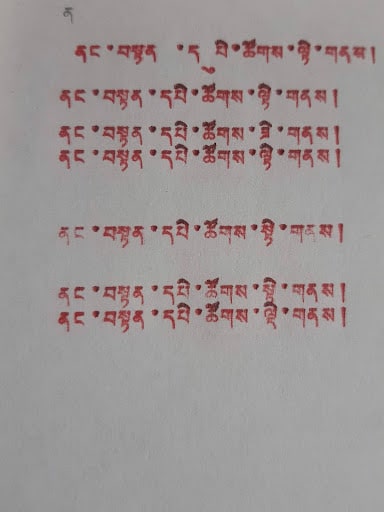 ན
ནང་བསྟན ་ད པེ་ཚོགས་ལྟེ་གནས།
ནང་བསྟན་དཔེ་ཚོགས་ལྟེ་གནས།
ནང་བསྟན་དཔེ་ཚོགས་ ་གནས།
ནང་བསྟན་དཔེ་ཚོགས་ལྟེ་གནས།
ནང་བསྟན་དཔེ་ཚོགས་ལྟེ་གནས།
ནང་བསྟན་དཔེ་ཚོགས་ལྟེ་གནས།
ནང་བསྟན་དཔེ་ཚོགས་ལྟེ་གནས།